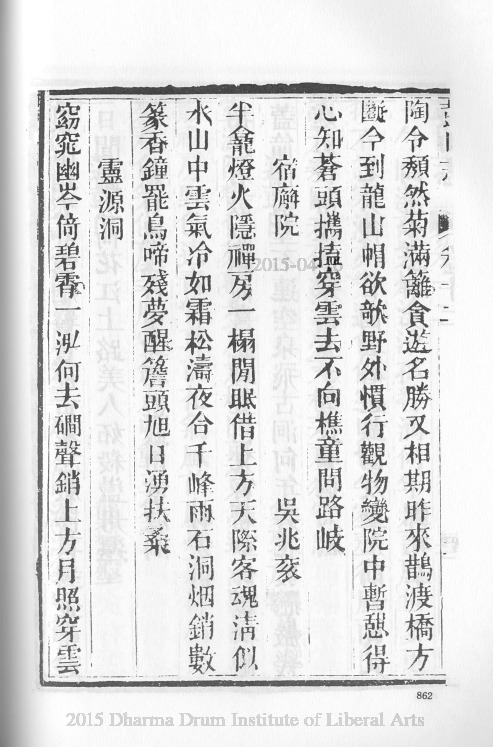 陶令頽然菊滿籬貪遊名勝又相期昨來鵲渡橋方
斷今到龍山帽欲欹野外慣行觀物變院中暫憇得
心知蒼頭攜榼穿雲去不向樵童問路岐
宿廨院 吳兆袞
半龕燈火隱禪房一榻閒眠借上方天際客魂淸似
水山中雲氣冷如霜松濤夜合千峰雨石洞烟銷數
篆香鐘罷鳥啼殘夢醒簷頭旭日湧扶桒
靈源洞
窈窕幽岑倚碧霄一泓何去磵聲銷上方月照穿雲
862
2015-04
2015 Dharma Drum Institute of Liberal Arts